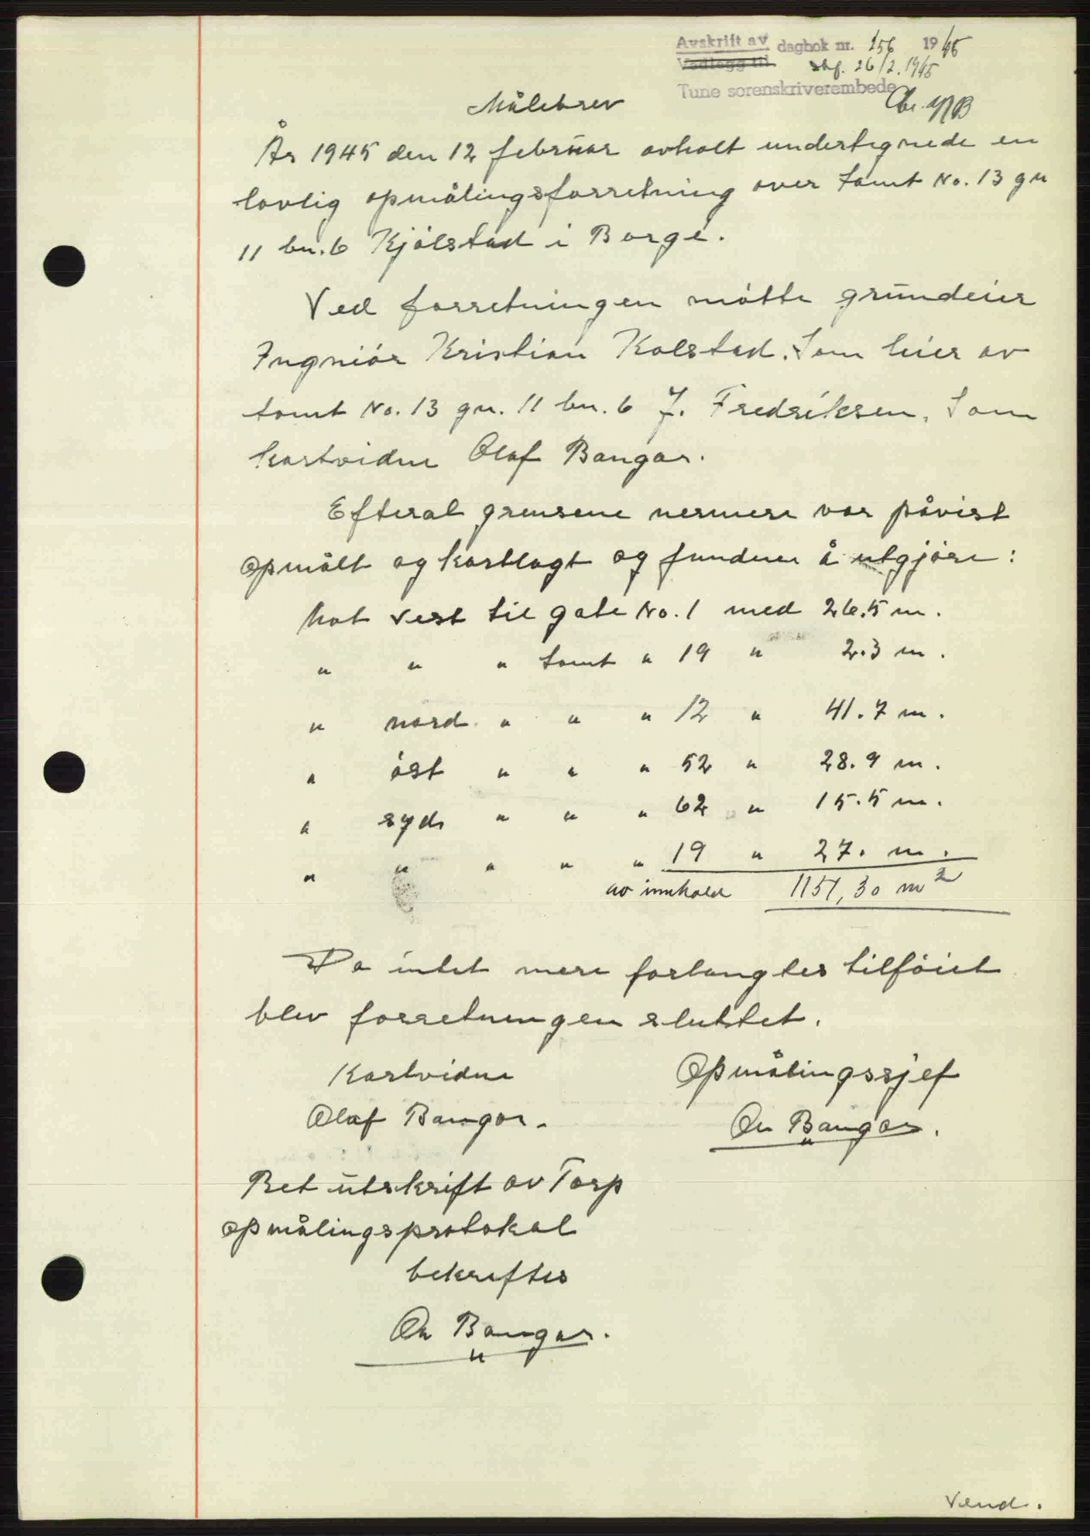 Avskrift av dagbok nr. 256 1945
Vedlegg til
26/2.1945
Tune sorenskriverembede
Målebrev
År 1945 den 12 februar avholt undertegnede en
lovlig opmålingsforretning over tomt No. 13 gn
11 bn. 6 Kjølstad i Borge.
Ved forretningen møtte grundeier
Ingniør Kristian Kolstad. Som leier av
tomt No. 13 gn. 11 bn. 6 J. Fredriksen. Som
kartvidne Olaf Bangar.
Efterat grensene nermere var påvist
opmålt og kartlagt og funden å utgjøre:
Mot vest til gate No. 1 med 26.5 m.
" " " tomt " 19 " 2.3 m.
" nord " " " 12 " 41.7 m.
" øst " " " 52 " 28.9 m.
" syd " " " 62 " 15.5 m.
" " " " " 19 " 27. m.
av innhold 1151,30 m2
Da intet mere forlangtes tilføiet
blev forretningen sluttet.
Kartvidne Opmålingssjef
Olaf Bangar. On Bangar.
Ret utskrift av Torp
opmålingsprotokol
bekreftes
On Bangar.
Vend.